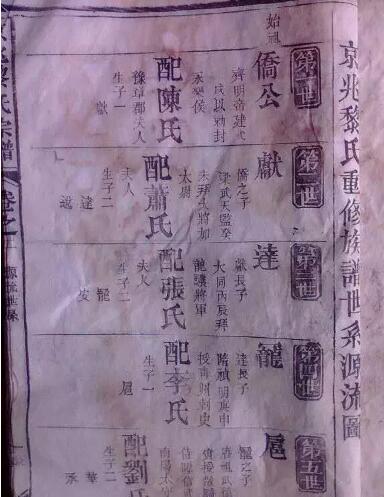 京兆黎氏重修族譜世系源流圖
始祖
第一世
僑公
齊明帝建武
戌以勅封
永樂侯
配陳氏
豫章郡夫人
生子一
獻
第二世
獻
僑之子
梁武天監癸
未拜大將加
太尉
配蕭氏
夫人
生子二
達
第三世
達
獻長子
大同丙辰拜
龍驤將軍
配張氏
夫人
生子二
龍
第四世
龍
達長子
陳禎明真申
授青州刺史
配李氏
生子一
扈
第五世
扈
龍之子
配劉氏
生子二
華
承
氏宗譜
卷之
源流世系